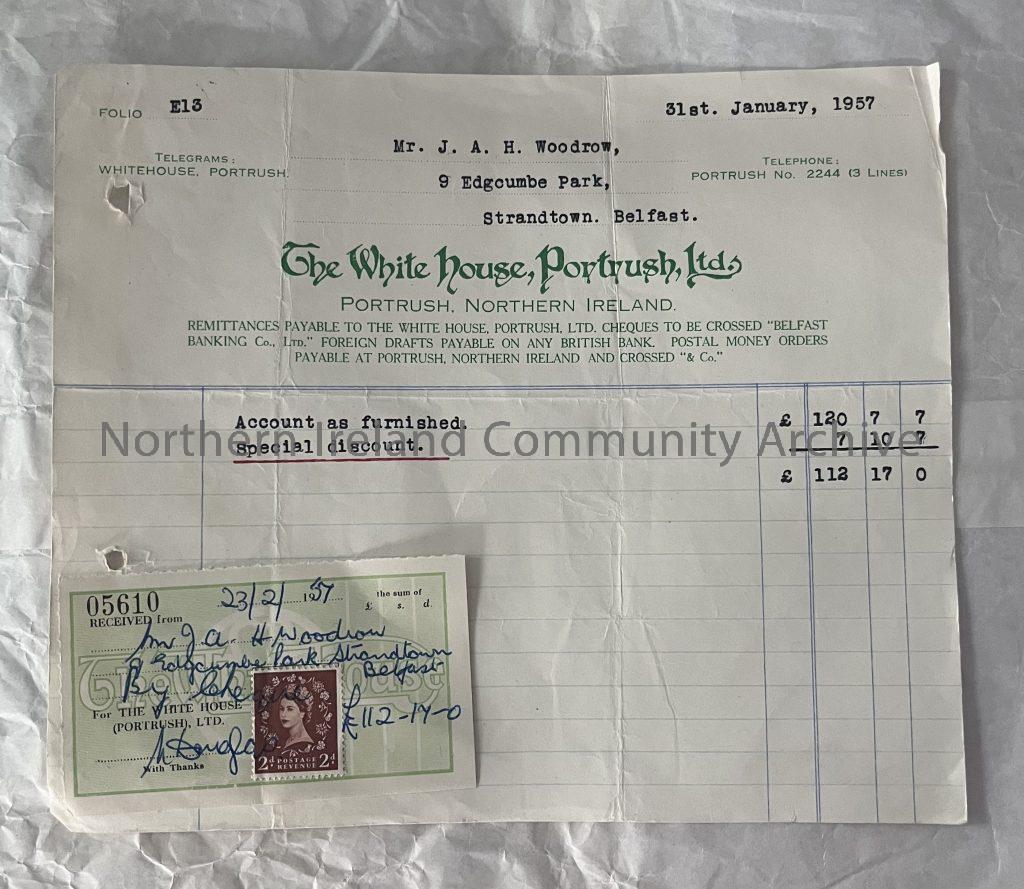 FOLIO E13
31st. January, 1957
Mr. J. A. H. Woodrow,
TELEGRAMS:
WHITEHOUSE, PORTRUSH.
9 Edgcumbe Park,
TELEPHONE:
PORTRUSH NO. 2244 (3 LINES)
Strandtown. Belfast.
The White House, Portrush, Ltd.
PORTRUSH, NORTHERN IRELAND.
REMITTANCES PAYABLE TO THE WHITE HOUSE, PORTRUSH, LTD. CHEQUES TO BE CROSSED "BELFAST
BANKING Co., LTD." FOREIGN DRAFTS PAYABLE ON ANY BRITISH BANK. POSTAL MONEY ORDERS
PAYABLE AT PORTRUSH, NORTHERN IRELAND AND CROSSED "& Co."
Account as furnished. £ 120 7 7
Special discount. 7 10 7
Northern Ireland Community Archive
£ 112 17 0
05610 23/2/1957 the sum of
£ s. d.
RECEIVED from
Mr J. A. H Woodrow
9 Edgcumbe Park Strandtown
Belfast
The White House
By Cheque
For THE WHITE HOUSE
(PORTRUSH), LTD.
£112-17-0
With Thanks
2d POSTAGE REVENUE 2d